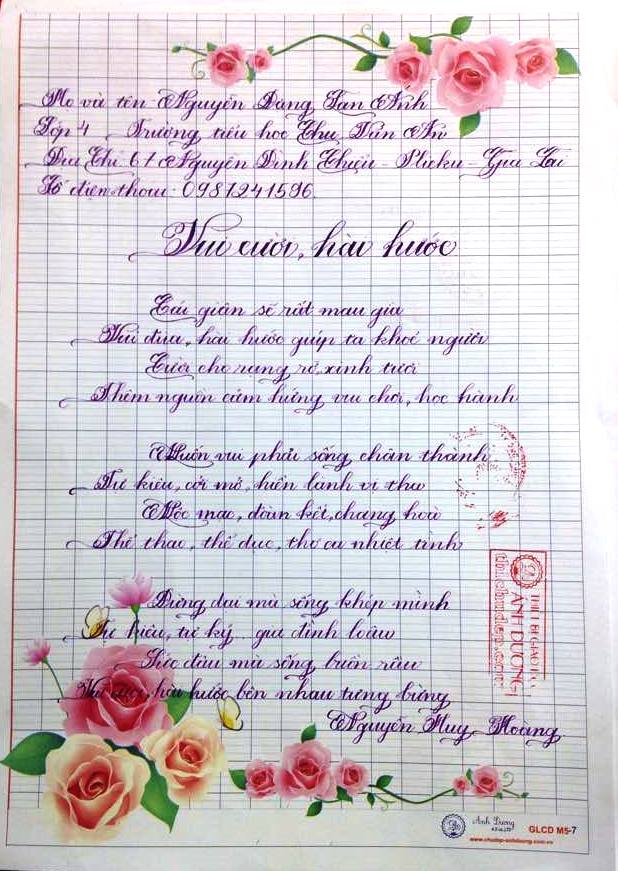 Họ và tên Nguyễn Đặng Lan Anh
Lớp 4 Trường tiểu học Chu Văn An
Địa Chỉ 61 Nguyễn Đình Chiểu - Pleiku - Gia Lai
Số điện thoại: 0981241596
Vui cười, hài hước
Cái giận sẽ rất mau già
Vui đùa, hài hước giúp ta khoẻ người
Cười cho rạng rỡ, xinh tươi
Thêm nguồn cảm hứng vui chơi, học hành
Muốn vui phải sống chân thành
Tự kiêu, cởi mở, hiền lành vị tha
Mộc mạc, đoàn kết, chang hoà
Thể thao, thể dục, thơ ca nhiệt tình
Đừng dại mà sống khép mình
Tự kiêu, tự kỷ... gia đình
Tội đâu mà sống buồn rầu
Vui cười, hài hước bên nhau tưng bừng
Nguyễn Huy Hoàng
THIẾT BỊ GIÁO DỤC
ÁNH DƯƠNG
Ánh Dương
GLCD M5-7
www.chudep-anhduong.com.vn